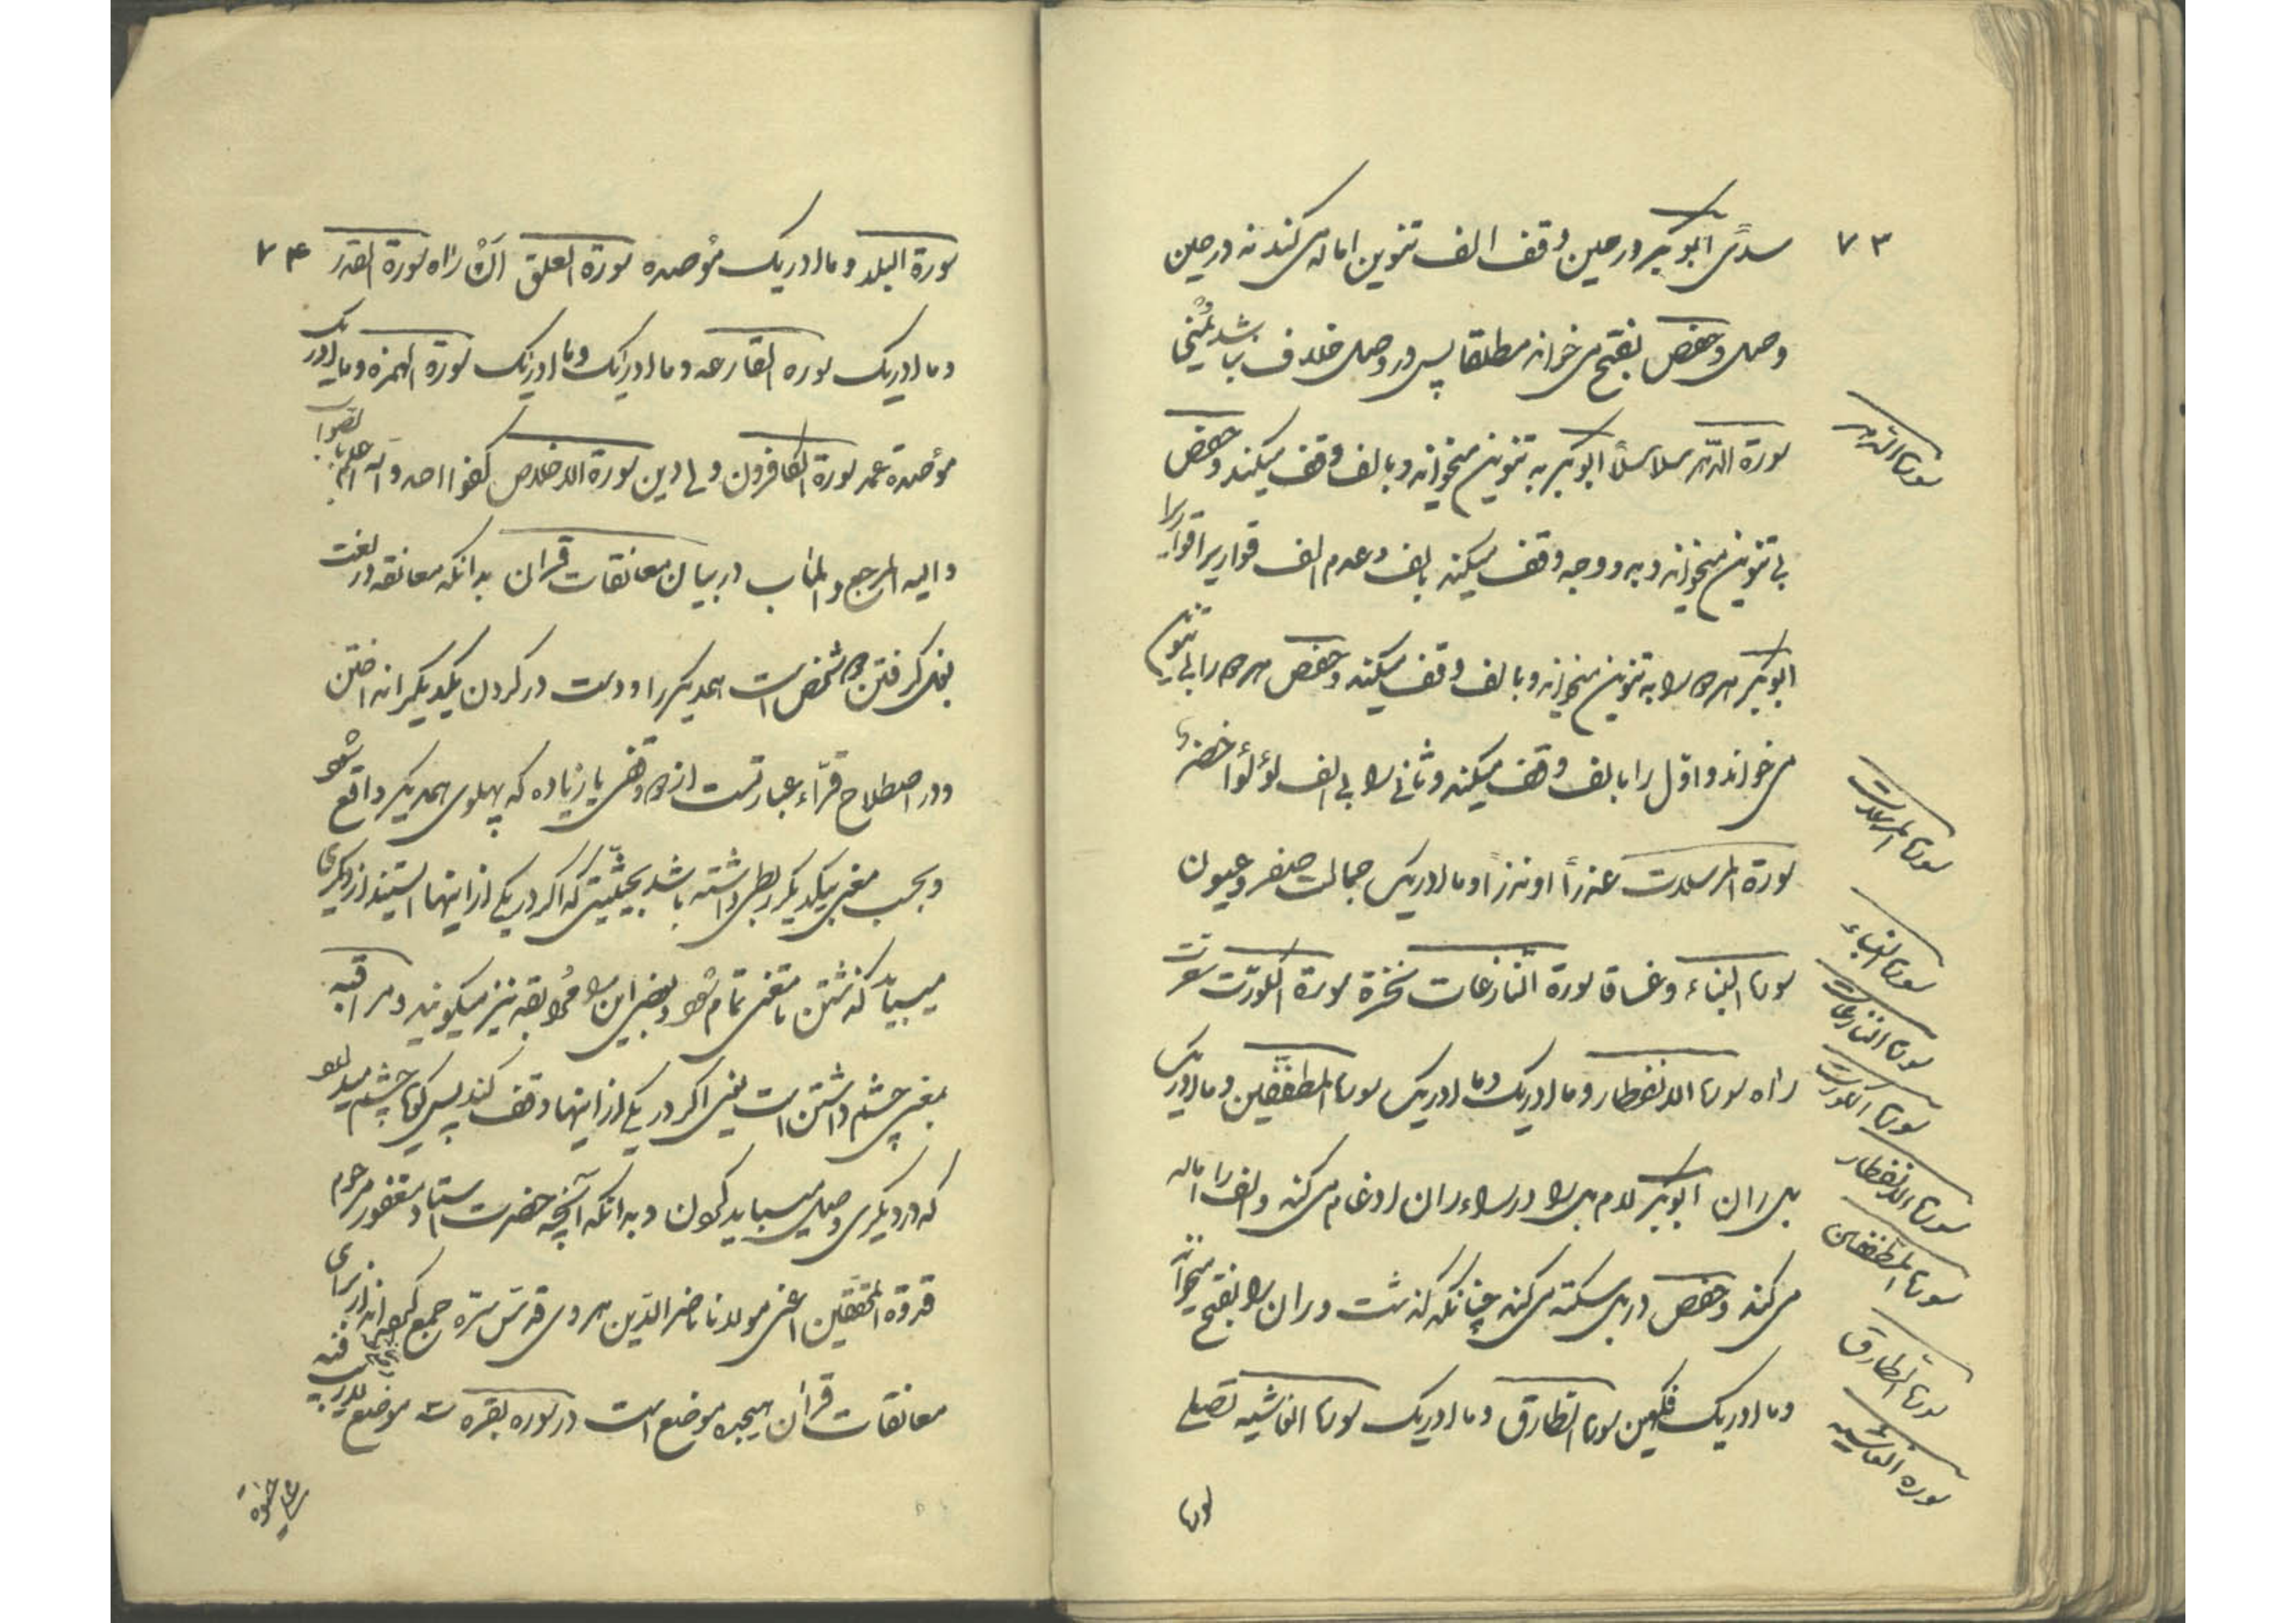 ۷۳
سدًی ابوبکر در حین وقف الف تنوین اماله می کند نه در حین
وصل و حفص بفتح می خواند مطلقا پس در وصل خلاف نباشد یُمْنی
سورة الدهر
سورة الدّهر سلاسلاً ابوبکر به تنوین میخواند و بالف وقف میکند و حفص
بی تنوین میخواند و به دو وجه وقف میکند بالف و عدم الف قواریرا قواریرا
ابوبکر هر دو را به تنوین میخواند و بالف وقف میکند و حفص هر دو را بی تنوین
می خواند و اوّل را بالف وقف میکند و ثانی را بی الف لؤلؤا خضر
سورة المرسلات
سورة المرسلات عذراً او نذراً و ما ادریک جمالت صفر و عیون
سورة النباء
سورة النباء و غساقا سورة النّازعات نخرة سورة الکورت سعرت
سورة النازعات
سورة الکورت
راه سورة الانفطار و ما ادریک و ما ادریک سورة المطففین و ما ادریک
سورة الانفطار
بل ران ابوبکر لام بل را در راء ران ادغام می کند و الف را اماله
سورة المطففین
می کند و حفص در بل سکته می کند چنانکه گذشت و ران را بفتح میخواند
سورة الطارق
و ما ادریک فکهین سورة الطارق و ما ادریک سورة الغاشیه تصلی
سورة الغاشیه
سورة
۷۴
سورة البلد و ما ادریک مؤصده سورة العلق اَنْ راٰه سورة القدر
و ما ادریک سوره القارعه و ما ادریک و ما ادریک سورة الهمزه و ما ادریک
مؤصدة عمد سورة الکافرون ولی دین سورة الاخلاص کفوا احد و الله اعلم بالصواب
و الیه المرجع و المٰاب در بیان معانقات قران بدانکه معانقه در لغت
بغل گرفتن دو شخص است همدیگر را و دست در گردن یکدیگر انداختن
و در اصطلاح قرّاء عبارتست از دو وقفی یا زیاده که پهلوی همدیگر واقع شود
و بحسب معنی بیکدیگر ربطی داشته باشد بحیثیتی که اگر در یکی از اینها ایستند از دیگری
میباید گذشتن تا معنی تمام شود و بعضی این را مراقبه نیز میگویند و مراقبه
بمعنی چشم داشتن است یعنی اگر در یکی از اینها وقف کند پس گویا چشم میدارد
که در دیگری وصل میباید کردن و بدانکه آنچه حضرت استاد مغفور مرحوم
قدوة المحققین اعنی مولانا ناصر الدّین هروی قدّس سرّه جمع کرده اند از برای
معانقات قران هیجده موضع است در سوره بقره سه موضع لاریب فیه